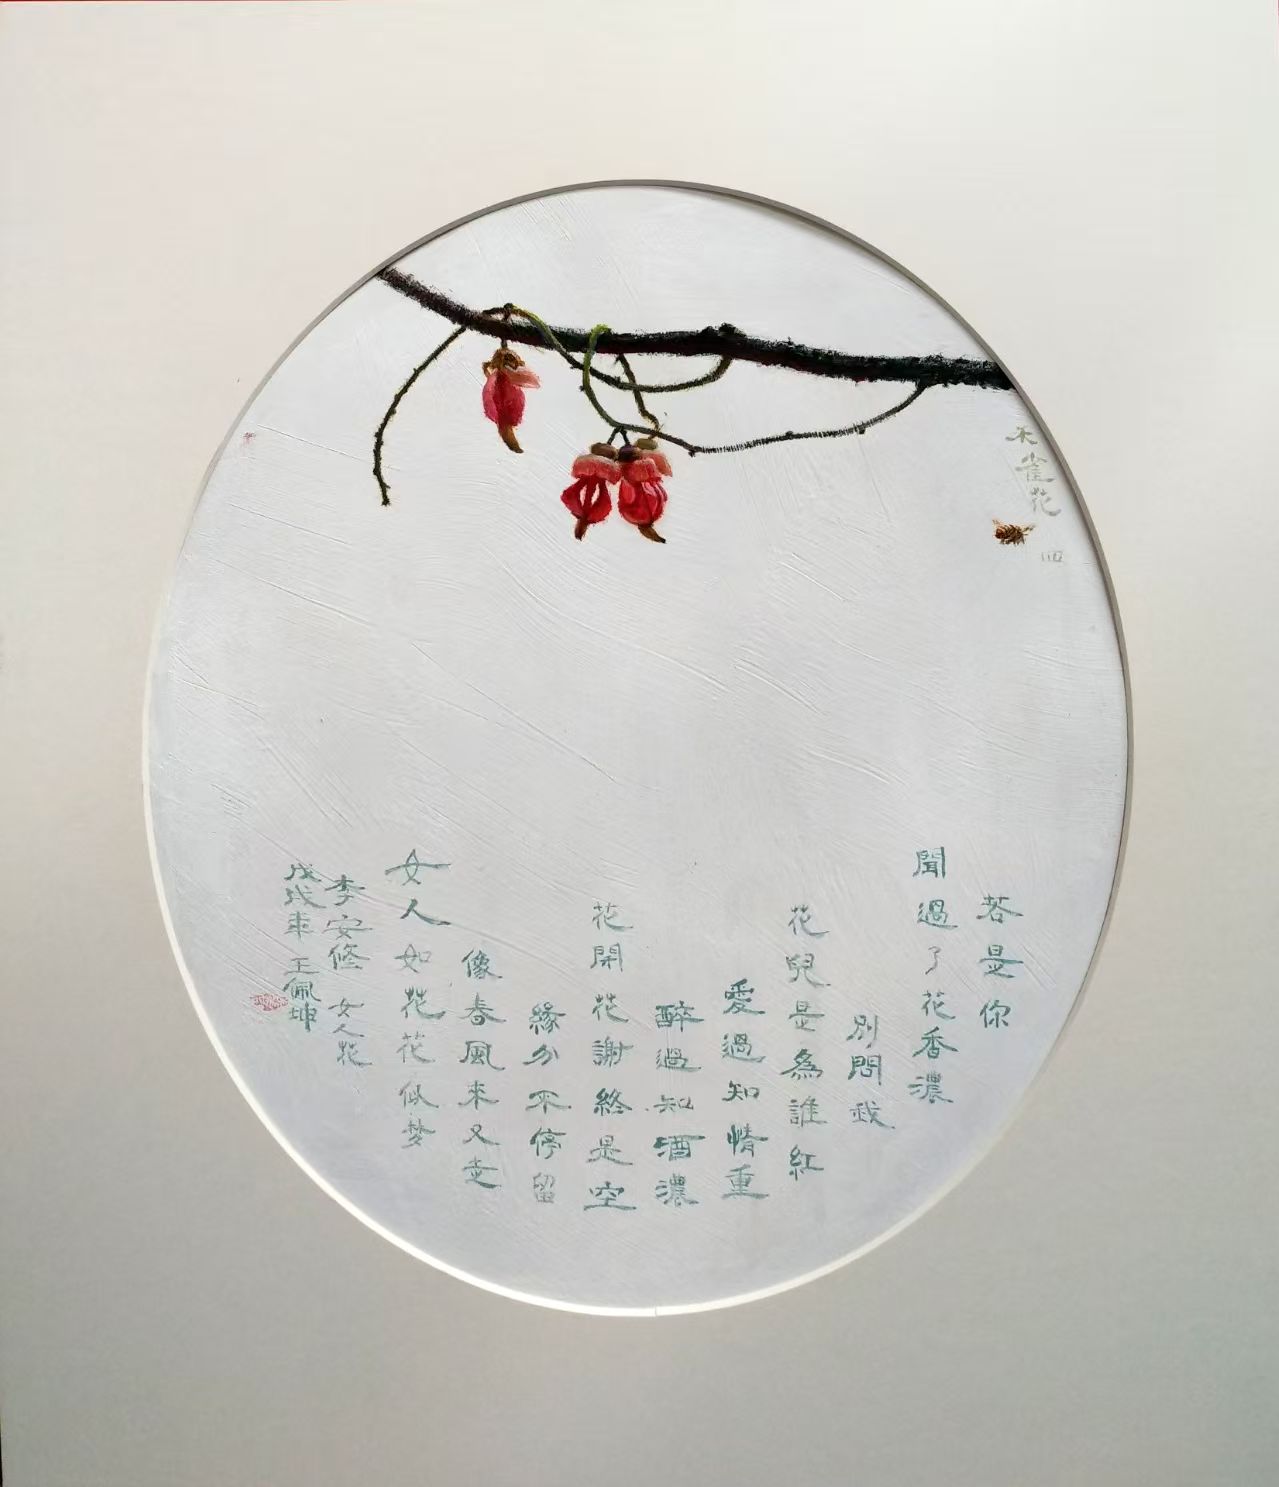 木雀花
四
若是你
聞過了花香濃
別問我
花兒是為誰紅
愛過知情重
醉過知酒濃
花開花謝終是空
緣分不停留
像春風來又走
女人如花花似梦
李安修 女人花
戊戌年 王佩坤